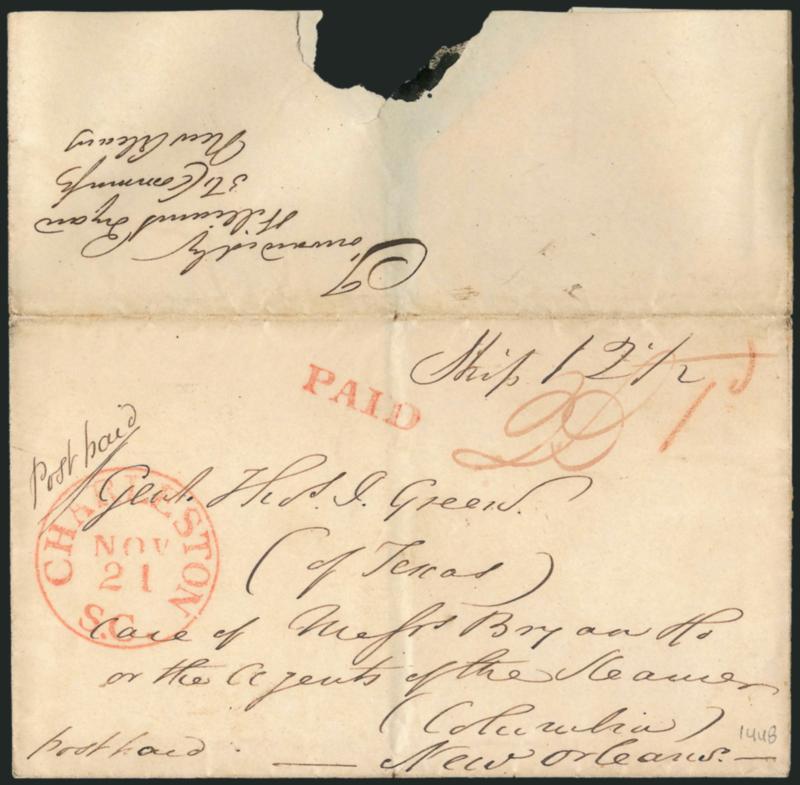 Forwarded by
William Bryan
36 Common St
New Orleans
Ship 12 1/2
PAID
Post paid
CHARLESTON
NOV
21
S.C.
Genl. Thos. J. Green.
(of Texas)
Care of Messrs Bryan &
or the Agents of the Steamer
(Columbia)
New Orleans.
post paid
1448